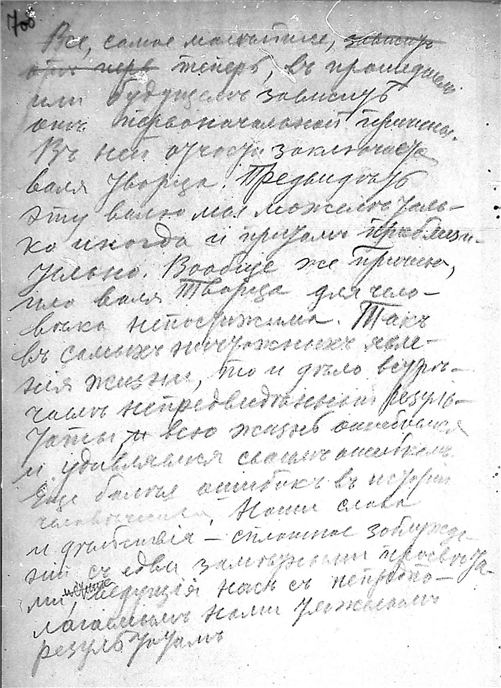 700
Все, самое малейшее, зависит
теперь, въ прошедшемъ
или будущемъ зависитъ
отъ первоначальной причины.
Въ ней отчасти заключается
воля Творца. Предвидѣть
эту волю мы можемъ толь-
ко иногда и притомъ приблизи-
тельно. Вообще же причина,
или воля Творца для чело-
вѣка непостижима. Такъ
въ самыхъ ничтожныхъ явле-
нія жизни, то и дѣло встрѣ-
чаемъ непредвидѣнный резуль-
таты и всю жизнь ошибаемся
и удивляемся своимъ ошибкамъ.
Еще болѣе ошибокъ въ исторіи
человѣчества. Наши слова
и дѣйствія – сплошное заблужде-
ній съ едва замѣтными просвѣта-
ми, ведущія насъ къ непредпо-
лагаемымъ нами тяжелымъ
результатамъ